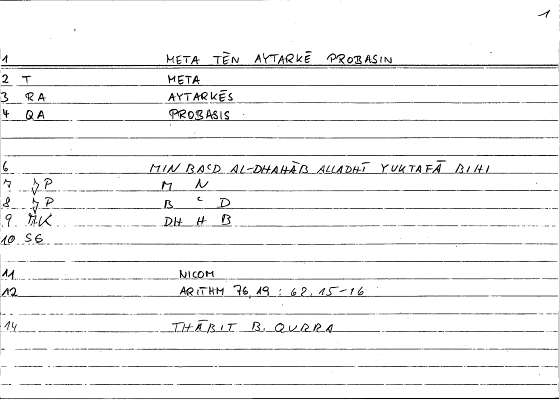 1
1 META TĒN AYTARKĒ PROBASIN
2 T META
3 RA AYTARKĒS
4 QA PROBASIS
6 MIN BAᶜD AL-DHAHĀB ALLADHĪ YUKTAFĀ BIHI
7 P M N
8 P B ᶜ D
9 DH H B
10 SE
11 NICOM
12 ARITHM 76,19 : 62,15-16
14 THĀBIT B. QURRA